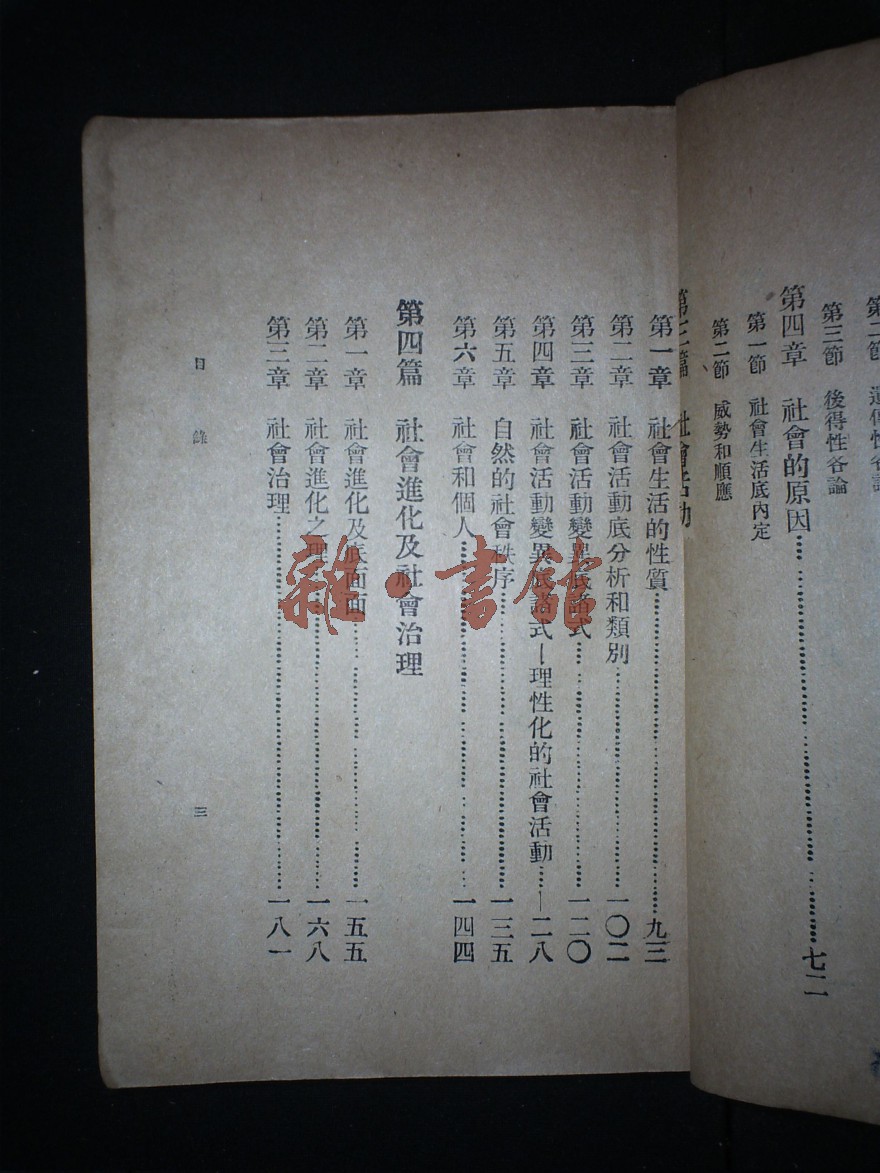 第三節 後得性各論
第四章 社會的原因……七二
第一節 社會生活底內定
第二節 威勢和順應
第三篇 社會活動
第一章 社會生活的性質……九三
第二章 社會活動底分析和類別……一〇二
第三章 社會活動變異底諸式……一二〇
第四章 社會活動變異底諸式—理性化的社會活動……一二八
第五章 自然的社會秩序……一三五
第六章 社會和個人……一四四
第四篇 社會進化及社會治理
第一章 社會進化及底面面……一五五
第二章 社會進化之理……一六八
第三章 社會治理……一八一
目錄
三
雜·書館